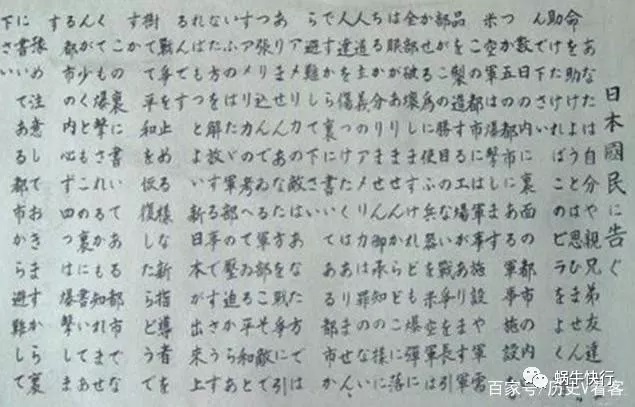 日本國民に告ぐ
あなたは自分や親兄弟友達の
命を助けようとは思ひませんか
助けたければこのビラをよく
んで下さい
数日の内に裏面の都市の内
つか五つの都市にある軍事施設を
米空軍は爆撃します
この都市には軍事施設や軍需
品を製造する工場があります軍
部がこの勝目のない戦争を長引
かせる為に使ふ兵器を米空軍は
全部破壊しますけれども爆弾に
は眼がありませんからどこに落
ちるか分りません御承知の様に
人道主義のアメリカは罪のない
人達を傷つけたくはありません
ですから裏に書いてある都市か
ら避難して下さい
アメリカの敵はあなた方では
ありませんあなた方を戦争に引
つ張り込んでゐる軍部こそ敵で
すアメリカの考へてゐる平和と
いふのはたゞ軍部の壓迫からあ
なた方を解放する事ですさうす
ればもつとよい新日本が出来上
るんです
戦争を止める様な新指導者を
樹てて平和を恢復したらどうで
すか
この裏に書いてある都市でな
くても爆撃されるかも知れませ
んが少くともこの裏に書いてあ
る都市の内必ず四つは爆撃しま
す
豫め注意しておきますから裏
に書いてある都市から避難して
下さい
百家号/历史V看客
蜗牛快行